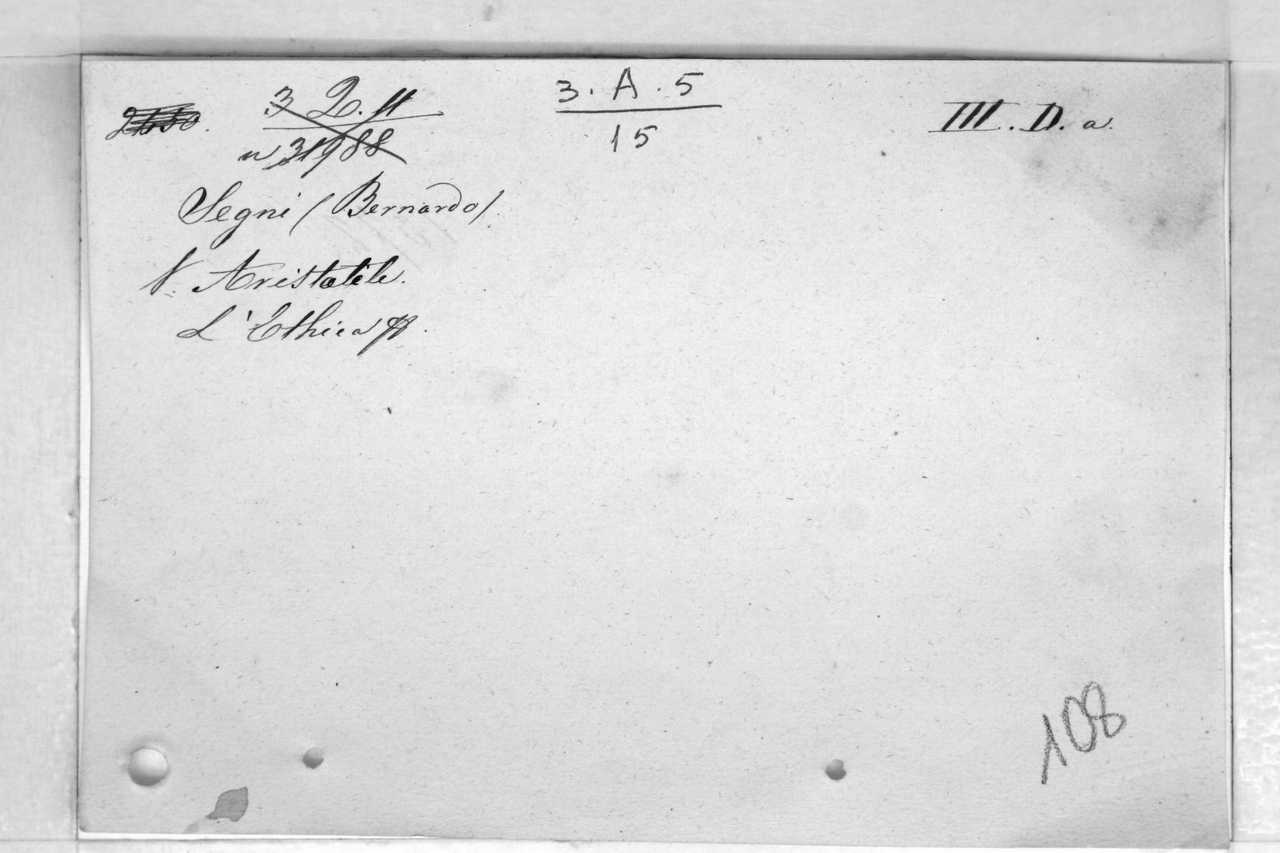 3. A. 5
15
III. D. a.
Segni (Bernardo).
V. Aristotele.
L'Ethica
108